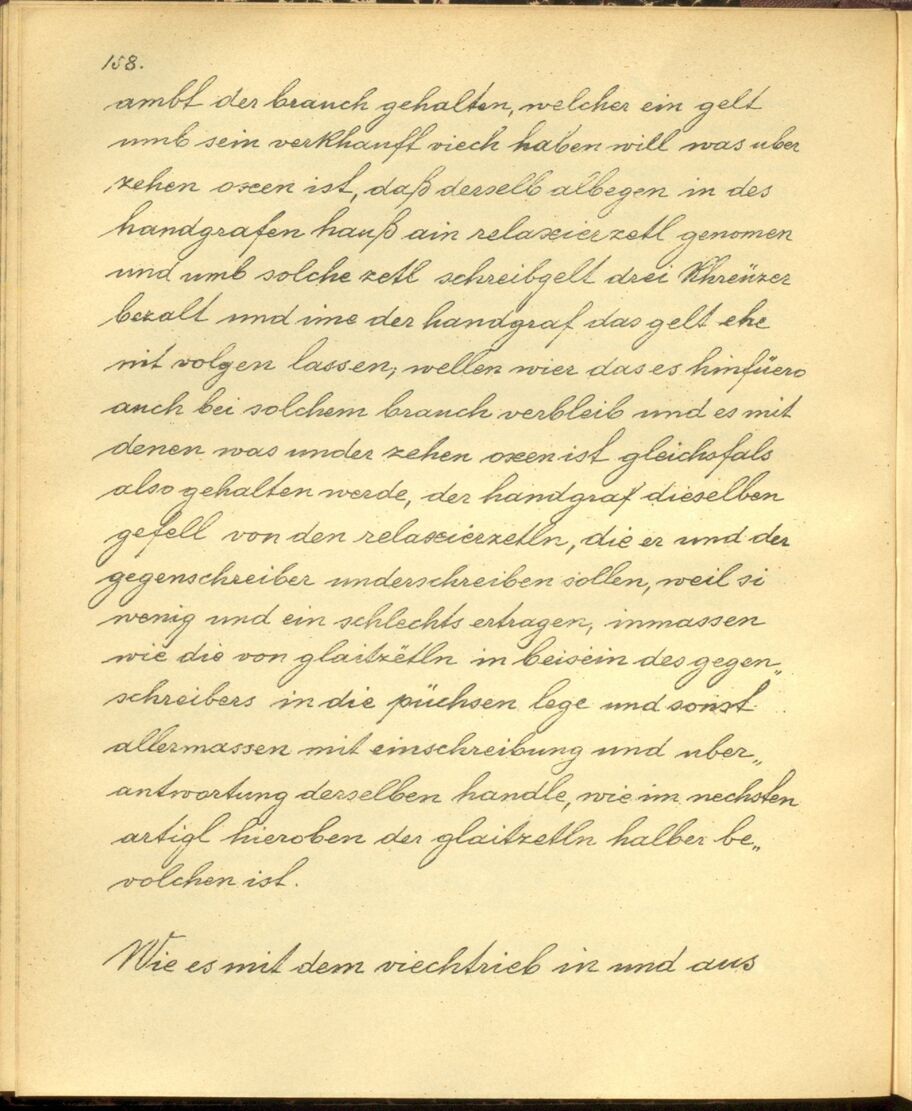 158.
ambt der brauch gehalten, welcher ein gelt
umb sein verkhaufft viech haben will was uber
zehen oxen ist, daß derselb albegen in des
handgrafen hauß ain relaxierzetl genomen
und umb solche zetl schreibgelt drei Khreüzer
bezalt und ime der handgraf das gelt ehe
nit volgen lassen, wellen wier das es hinfüero
auch bei solchem brauch verbleib und es mit
denen was under zehen oxen ist gleichsfals
also gehalten werde, der handgraf dieselben
gefell von den relaxierzetln, die er und der
gegenschreiber underschreiben sollen, weil si
wenig und ein schlechts ertragen, inmassen
wie die von glaitzëtln in beisein des gegen„
schreibers in die püchsen lege und sonst
allermassen mit einschreibung und uber„
antwortung derselben handle, wie im nechsten
artigl hieroben der glaitzetln halber be„
volchen ist.
Wie es mit dem viechtrieb in und aus